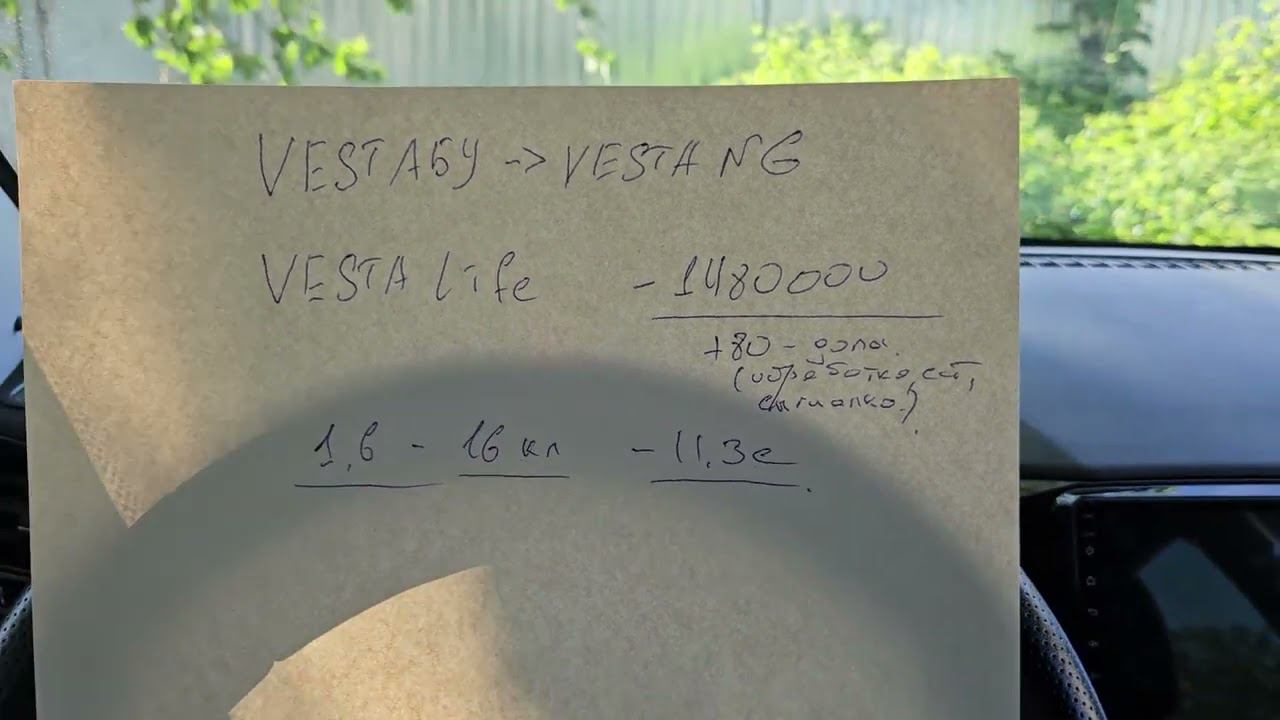 VESTA БУ -> VESTA NG
VESTA Life - 1480000
+80 - допы.
(обработка, сетка,
сигналка.)
1,6 - 16 кл - 11,3с.